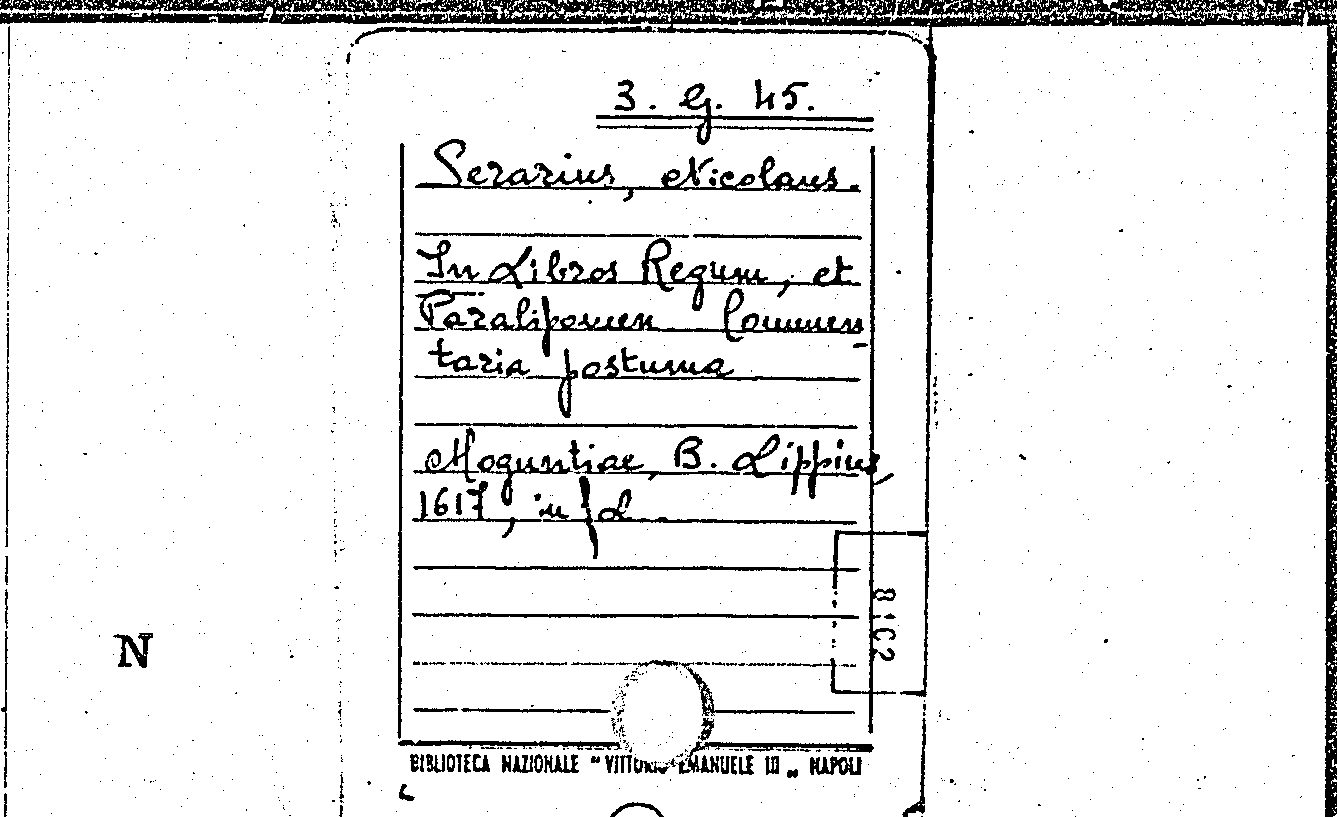 3. G. 45.
Serarius, Nicolaus.
In Libros Regum, et
Paralipomen Commen
taria postuma
Moguntiae, B. Lippius,
1617, in fol
8102
N
BIBLIOTECA NAZIONALE "VITTORIO EMANUELE III" NAPOLI